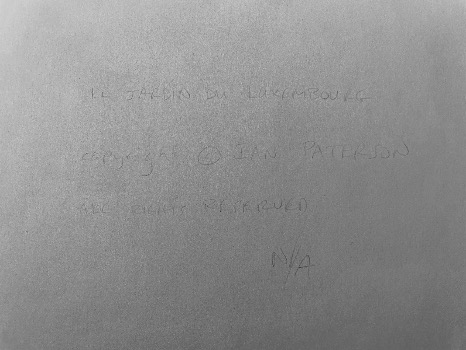 LE JARDIN DU LUXEMBOURG
copyright © IAN PATERSON
ALL RIGHTS RESERVED
N/A